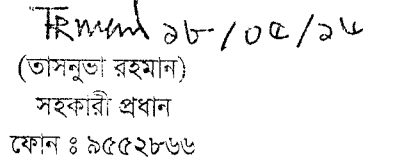 ২৮/০৫/১৮
(তাসনুভা রহমান)
সহকারী প্রধান
ফোন ঃ ৯৫৫২৮৬৬